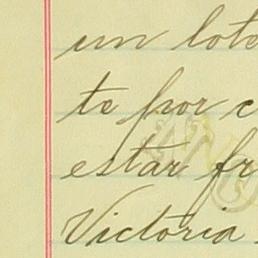 un lote
te por c
estar fr
Victoria